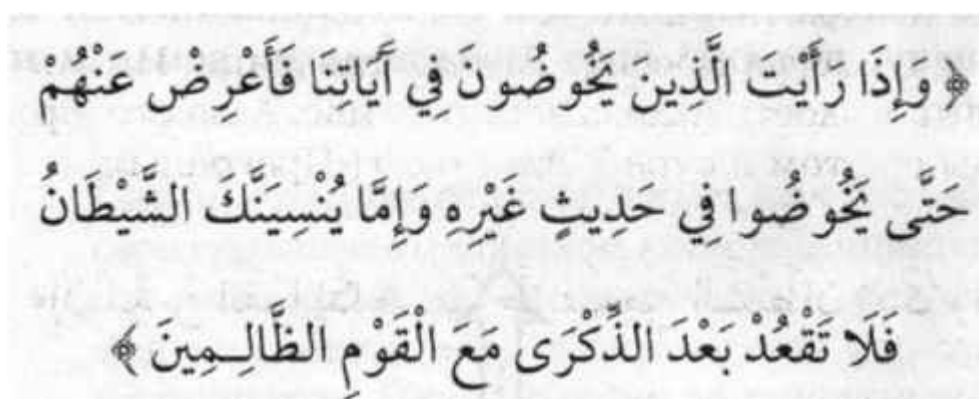 ﴿ وَإِذَا رَأَيْتَ الَّذِينَ يَخُوضُونَ فِي آَيَاتِنَا فَأَعْرِضْ عَنْهُمْ
حَتَّى يَخُوضُوا فِي حَدِيثٍ غَيْرِهِ وَإِمَّا يُنْسِيَنَّكَ الشَّيْطَانُ
فَلَا تَقْعُدْ بَعْدَ الذِّكْرَى مَعَ الْقَوْمِ الظَّالِـمِينَ ﴾